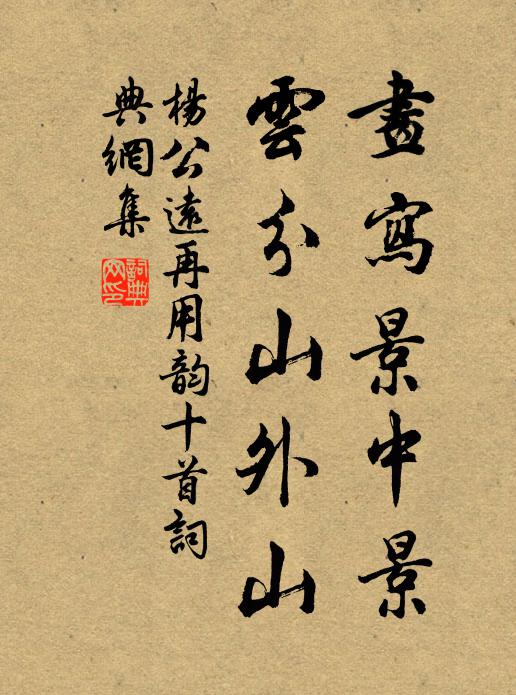 畫寫景中景
雲分山外山
楊公遠再用韵十首詞
典網集
詞典
网印